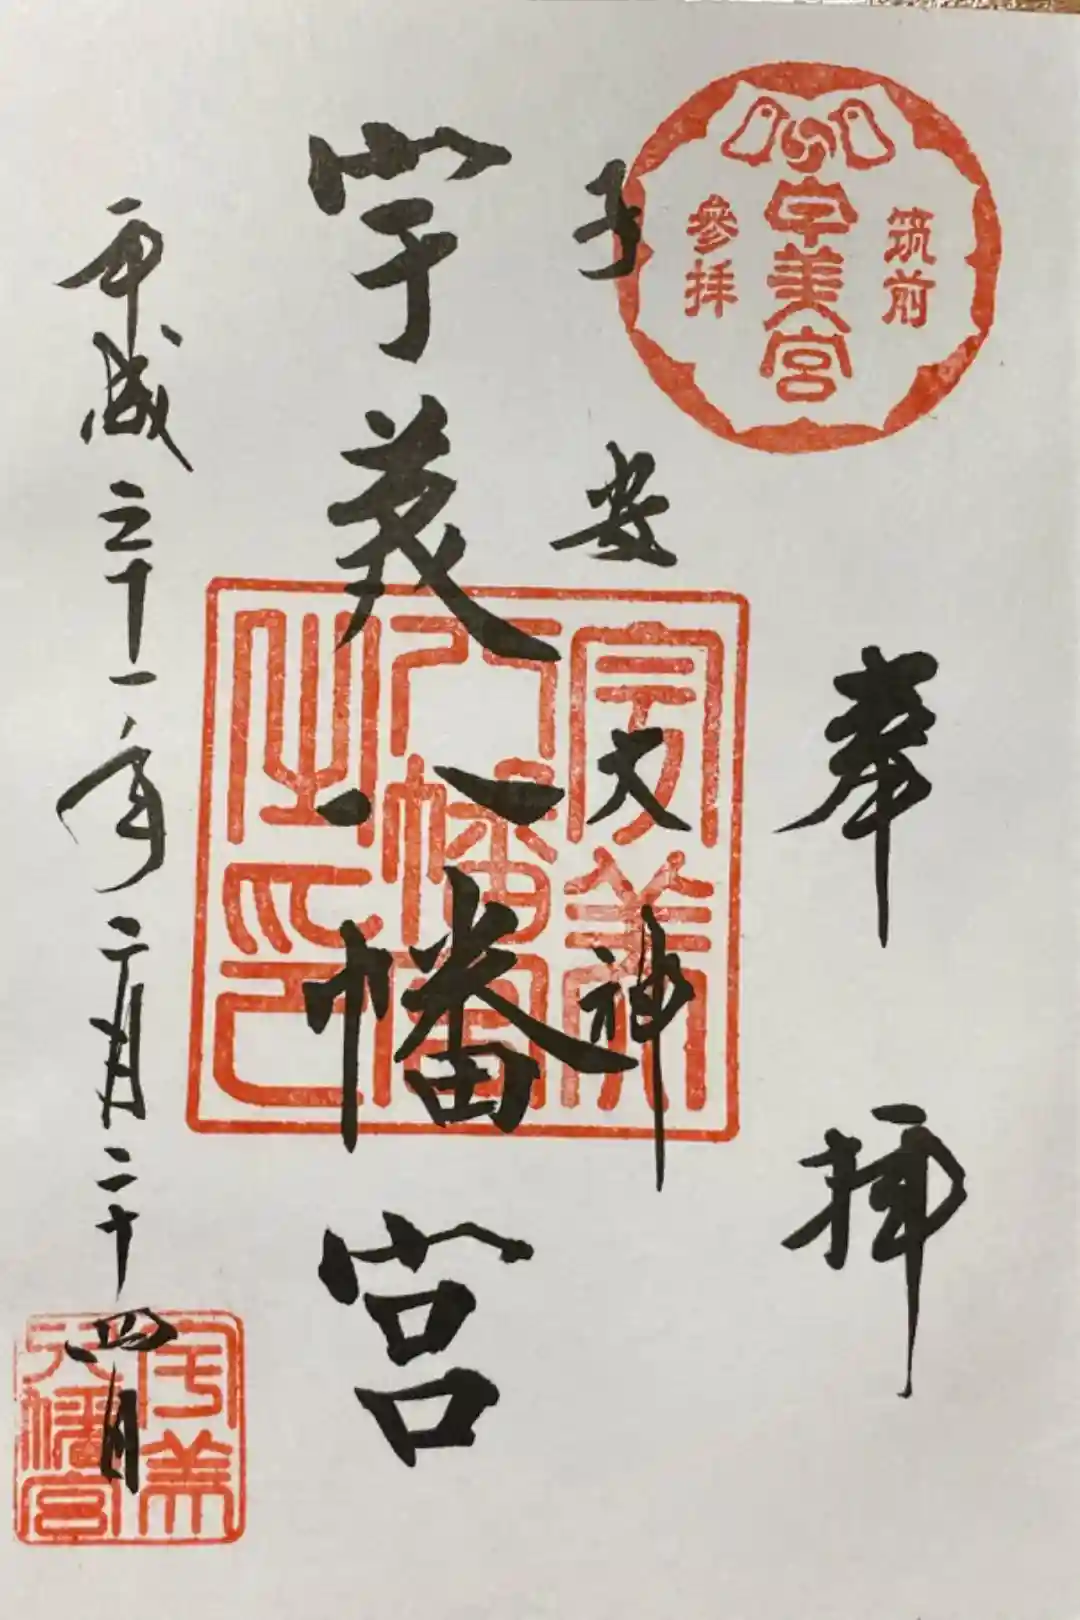 筑前
宇美宮
參拝
奉拝
子安大神
宇美八幡宮
平成三十一年二月二十四日
宇美
八幡
之印
宇美
八幡宮